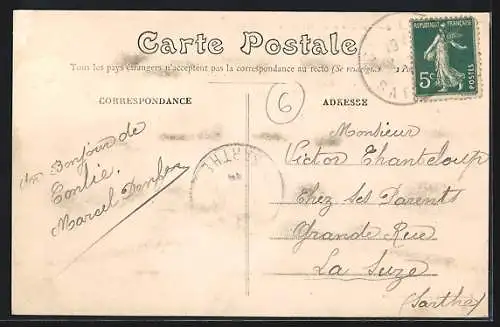 Carte Postale
Tous les pays étrangers n'acceptent pas la correspondance au recto (Se renseigner
RÉPUBLIQUE FRANÇAISE
5c
POSTES
CORRESPONDANCE
ADRESSE
6
Un Bonjour de
Conlie.
Marcel
SARTHE
Monsieur
Victor Chanteloup
Chez ses Parents
Grande Rue
La Suze
(Sarthe)